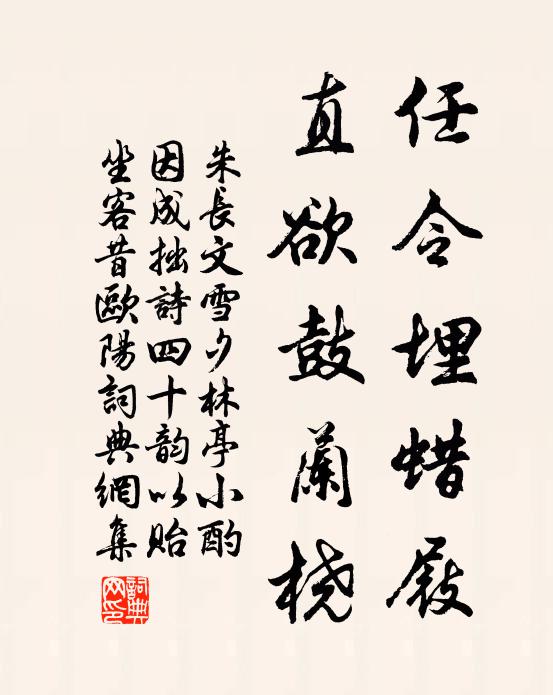 任令埋蜡屐
直欲鼓蘭橈
朱長文雪夕林亭小酌
因成拙詩四十韵以貽
坐客昔歐陽詞典網集
詞典網印